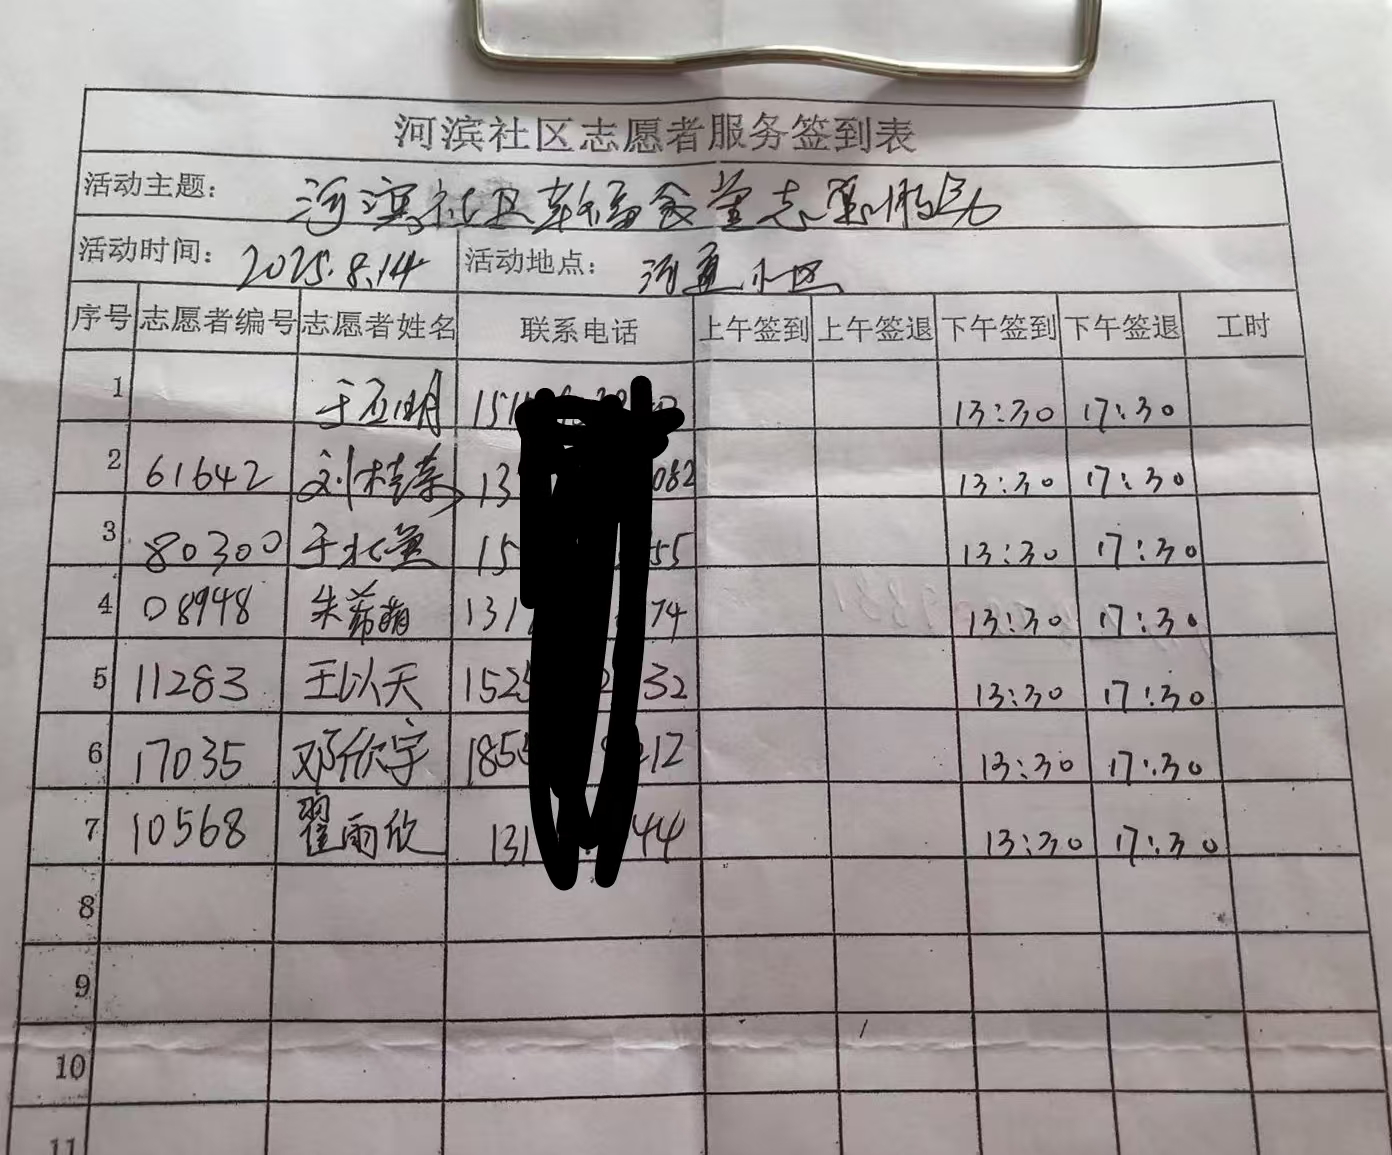 河滨社区志愿者服务签到表
活动主题： 河滨社区幸福食堂志愿服务
活动时间： 2025.8.14 活动地点： 河小区
序号 志愿者编号 志愿者姓名 联系电话 上午签到 上午签退 下午签到 下午签退 工时
1 于明 151 13:30 17:30
2 61642 刘桂荣 13 082 13:30 17:30
3 80300 于 15 55 13:30 17:30
4 08948 朱希萌 131 74 13:30 17:30
5 11283 王以天 152 32 13:30 17:30
6 17035 邓欣宇 185 212 13:30 17:30
7 10568 翟雨欣 131 44 13:30 17:30
8
9
10
11